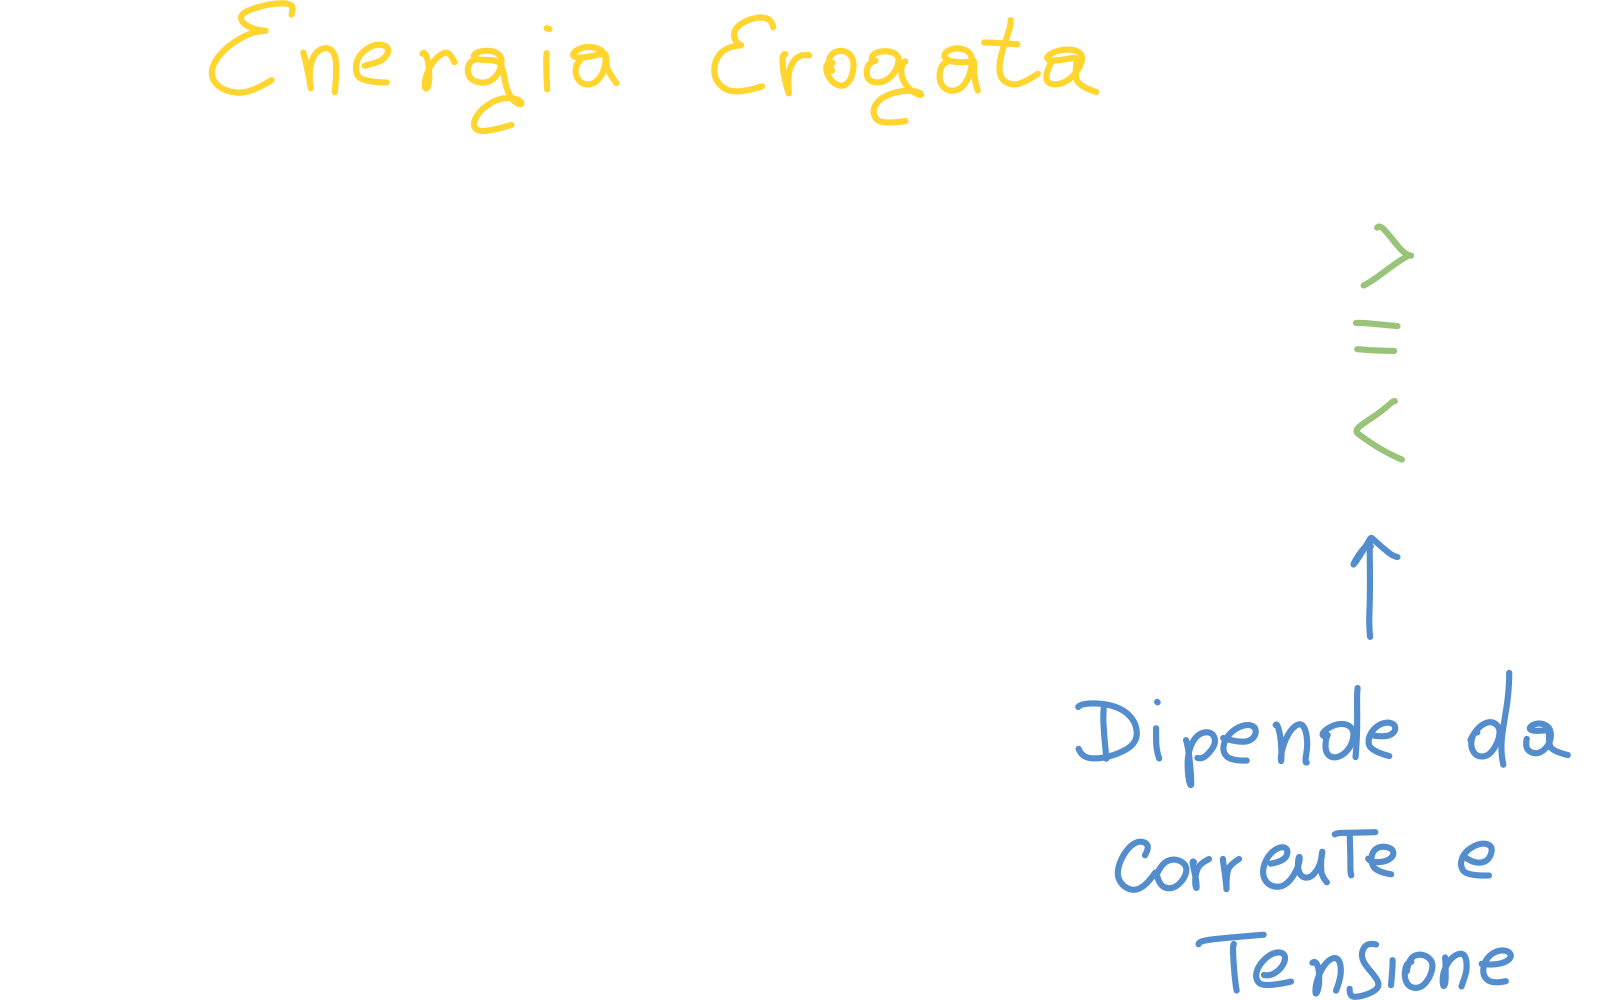 Energia Erogata
>
=
<
↑
Dipende da
Corrente e
Tensione